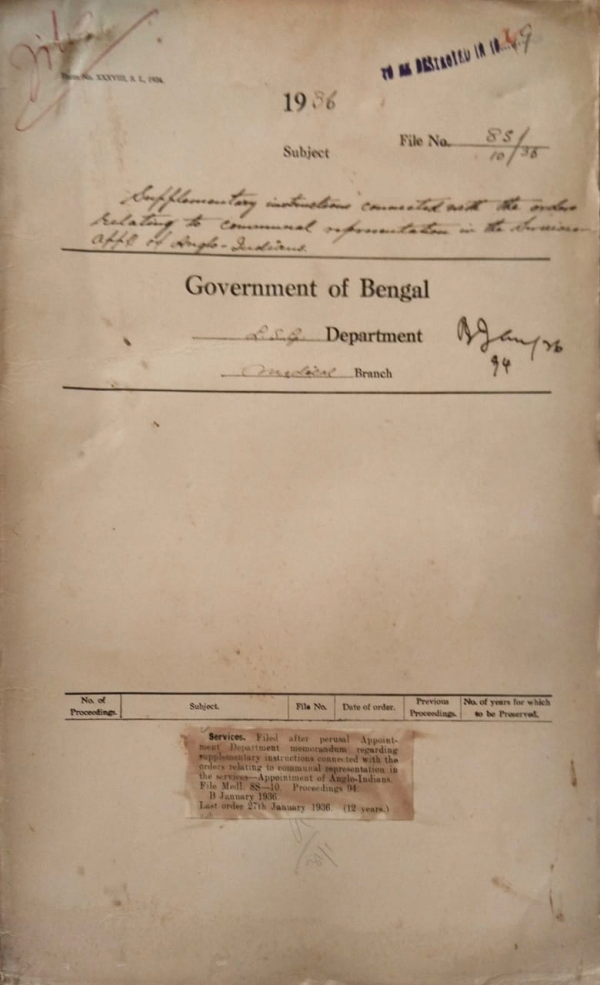 Form No. XXXVIII, S. L., 1934.
TO BE DESTROYED IN 19 49
1936
File No. 8S/
10/36
Subject
Supplementary instructions connected with the orders
relating to communal representation in the Services-
Appt. of Anglo-Indians.
Government of Bengal
L.S.G. Department
B Jany/36
94
Medical Branch
No. of Proceedings. Subject. File No. Date of order. Previous Proceedings. No. of years for which to be Preserved.
Services. Filed after perusal Appoint-
ment Department memorandum regarding
supplementary instructions connected with the
orders relating to communal representation in
the services—Appointment of Anglo-Indians.
File Medl. 8S—10. Proceedings 94
B January 1936.
Last order 27th January 1936. (12 years.)